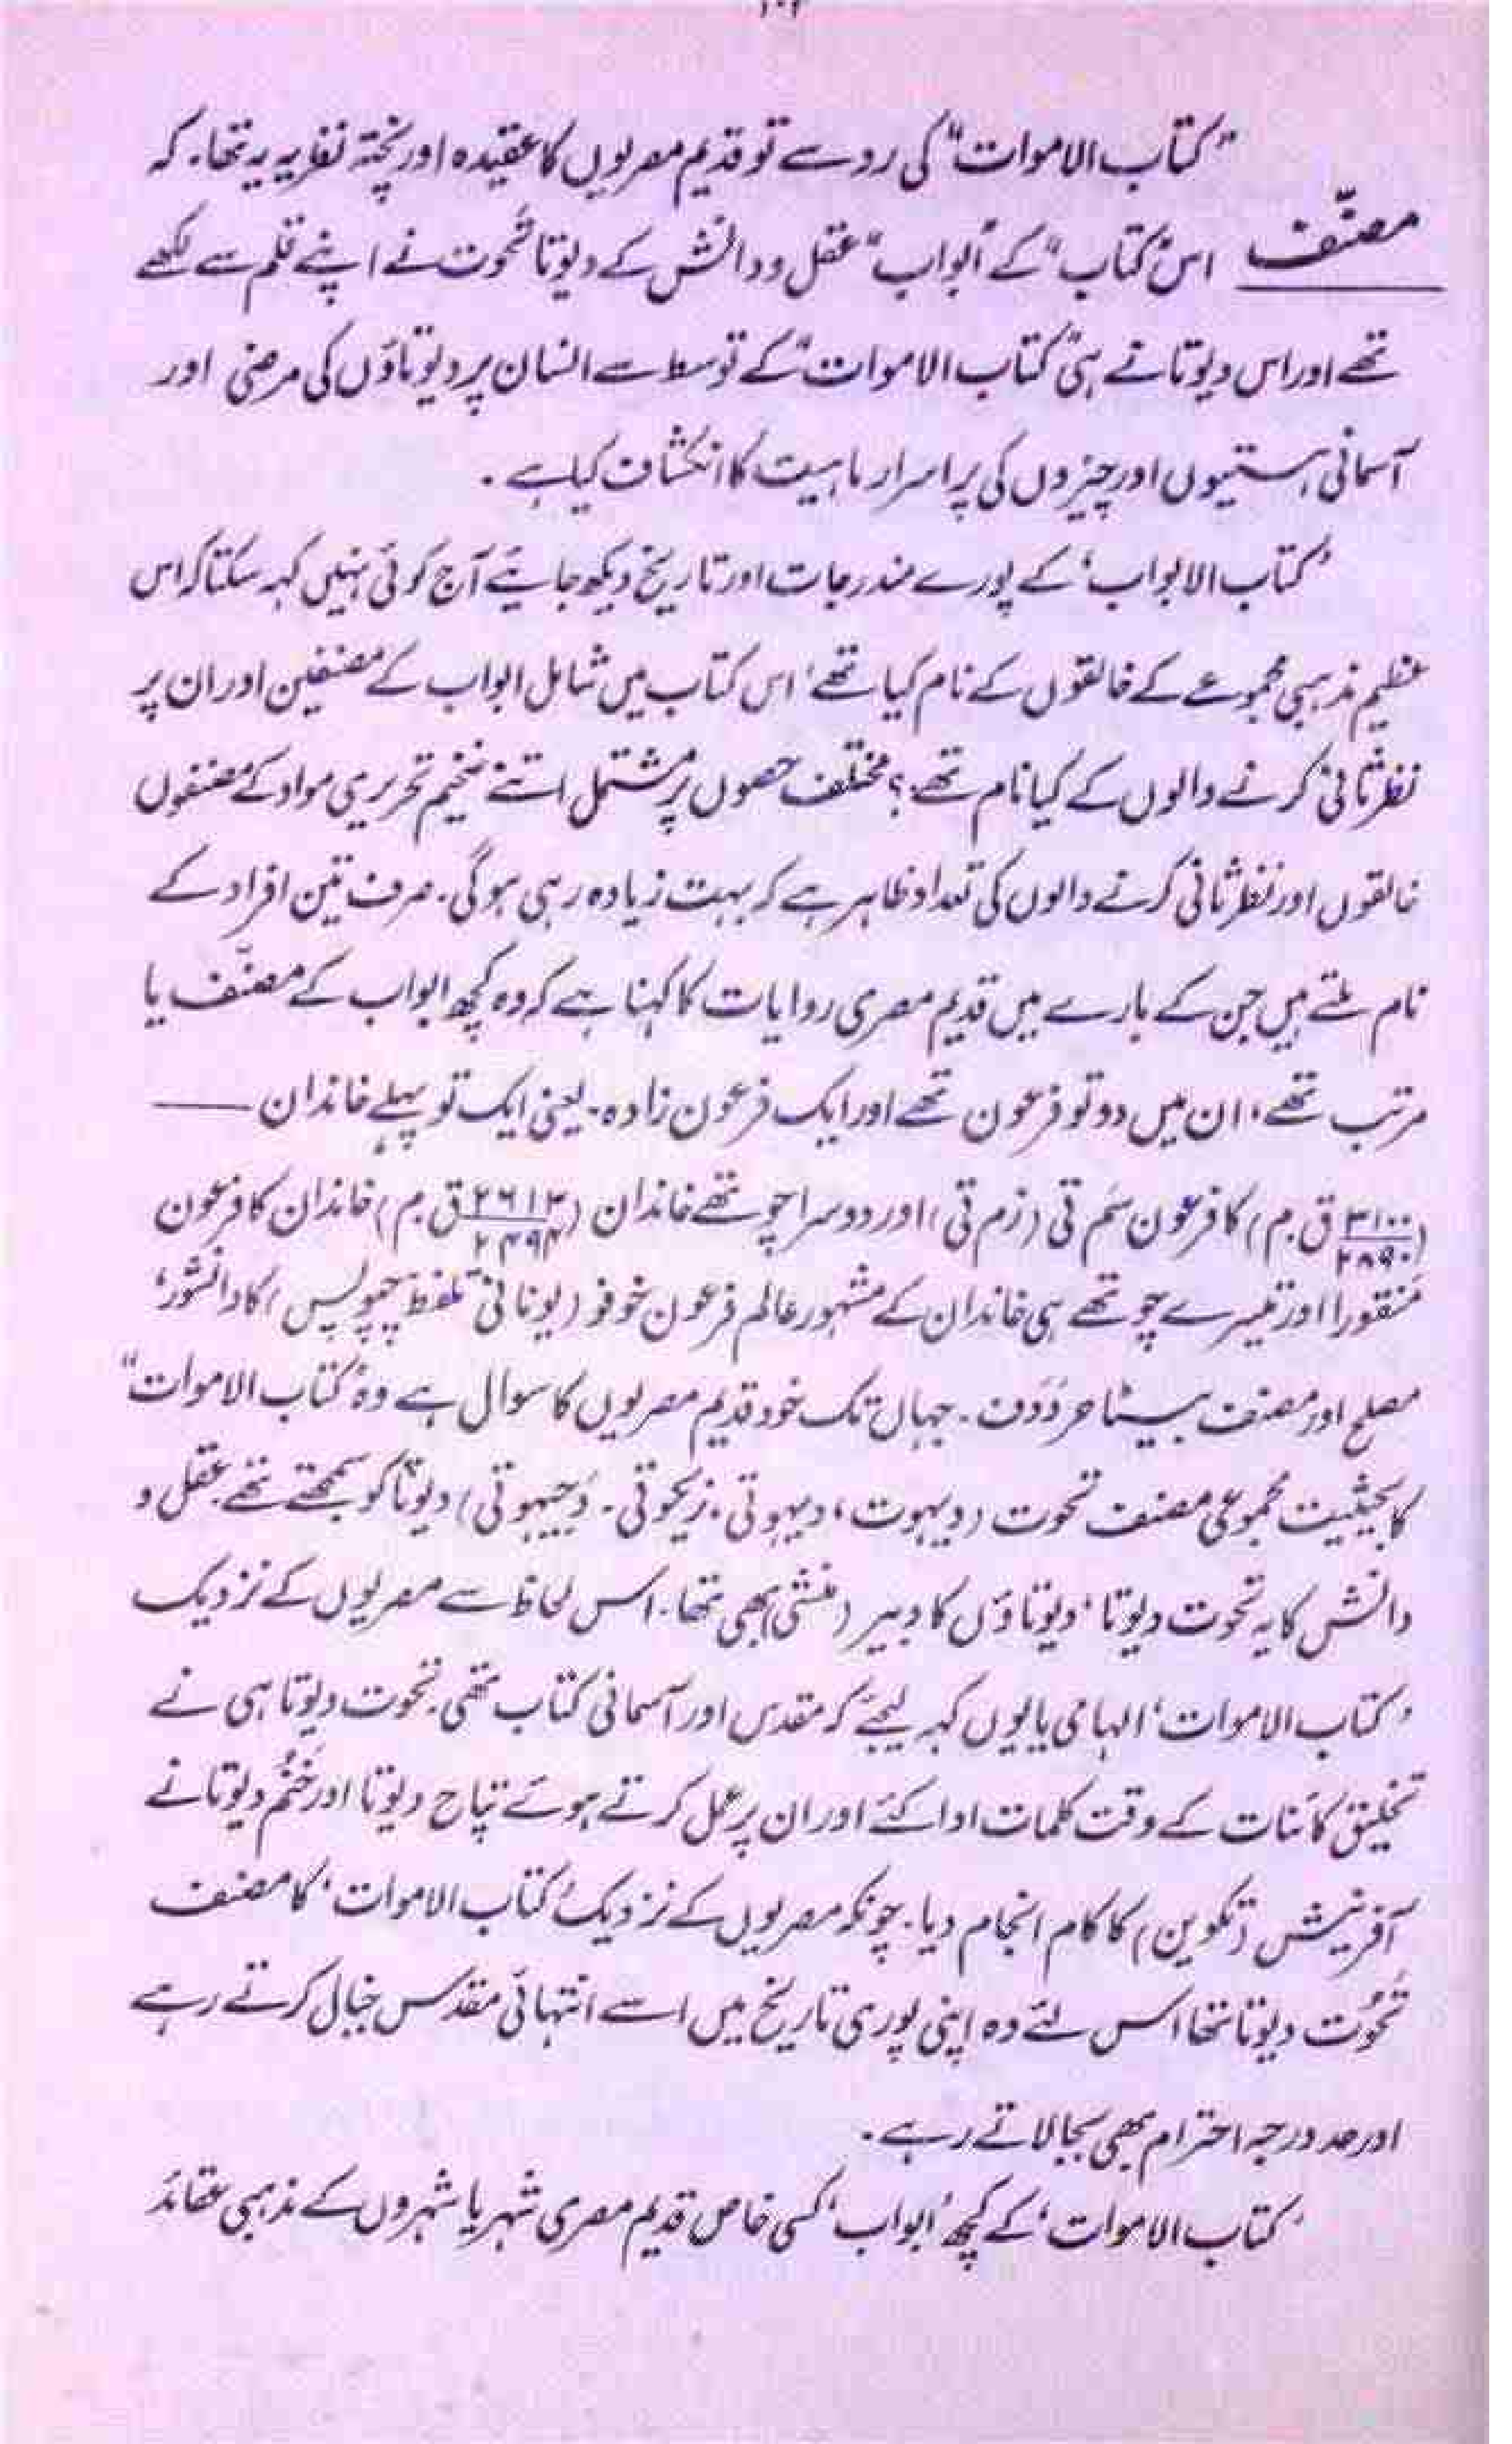 "کتاب الاموات" کی رو سے تو قدیم مصریوں کا عقیدہ اور پختہ نظریہ یہ تھا۔ کہ
مصنّف
اس "کتاب" کے "ابواب" عقل و دانش کے دیوتا تحوت نے اپنے قلم سے لکھے
تھے اور اس دیوتا نے ہی "کتاب الاموات" کے توسط سے انسان پر دیوتاؤں کی مرضی اور
آسمانی ہستیوں اور چیزوں کی پراسرار ماہیت کا انکشاف کیا ہے۔
'کتاب الابواب' کے پورے مندرجات اور تاریخ دیکھ جائیے آج کوئی نہیں کہہ سکتا کہ اس
عظیم مذہبی مجموعے کے خالقوں کے نام کیا تھے، اس کتاب میں شامل ابواب کے مصنفین اور ان پر
نظر ثانی کرنے والوں کے کیا نام تھے؟ مختلف حصوں پر مشتمل اتنے ضخیم تحریری مواد کے مصنفوں
خالقوں اور نظر ثانی کرنے والوں کی تعداد ظاہر ہے کہ بہت زیادہ رہی ہوگی۔ صرف تین افراد کے
نام ملتے ہیں جن کے بارے میں قدیم مصری روایات کا کہنا ہے کہ وہ کچھ ابواب کے مصنّف یا
مرتب تھے، ان میں دو تو فرعون تھے اور ایک فرعون زادہ۔ یعنی ایک تو پہلے خاندان ——
(۳۱۰۰/۲۸۹۰ ق۔م) کا فرعون سَم تی (زم تی) اور دوسرا چوتھے خاندان (۲۶۱۳/۲۴۹۴ ق۔م) خاندان کا فرعون
مَنقورا اور تیسرے چوتھے ہی خاندان کے مشہور عالم فرعون خوفو (یونانی تلفظ چیوپس) کا دانشور،
مصلح اور مصنف بیٹا حردَدف۔ جہاں تک خود قدیم مصریوں کا سوال ہے وہ "کتاب الاموات"
کا بحیثیت مجموعی مصنف تحوت (دیہوت، دیہوتی، زیحوتی۔ دجیہوتی) دیوتا کو سمجھتے تھے۔ عقل و
دانش کا یہ تحوت دیوتا، دیوتاؤں کا دبیر (منشی) بھی تھا۔ اس لحاظ سے مصریوں کے نزدیک
'کتاب الاموات' الہامی یا یوں کہہ لیجئے کہ مقدس اور آسمانی کتاب تھی۔ تحوت دیوتا ہی نے
تخلیق کائنات کے وقت کلمات ادا کئے اور ان پر عمل کرتے ہوئے تپاح دیوتا اور خنُم دیوتا نے
آفرینش (تکوین) کا کام انجام دیا۔ چونکہ مصریوں کے نزدیک 'کتاب الاموات' کا مصنف
تحُوت دیوتا تھا اس لئے وہ اپنی پوری تاریخ میں اسے انتہائی مقدس خیال کرتے رہے
اور حد درجہ احترام بھی بجا لاتے رہے۔
'کتاب الاموات' کے کچھ 'ابواب' کسی خاص قدیم مصری شہر یا شہروں کے مذہبی عقائد